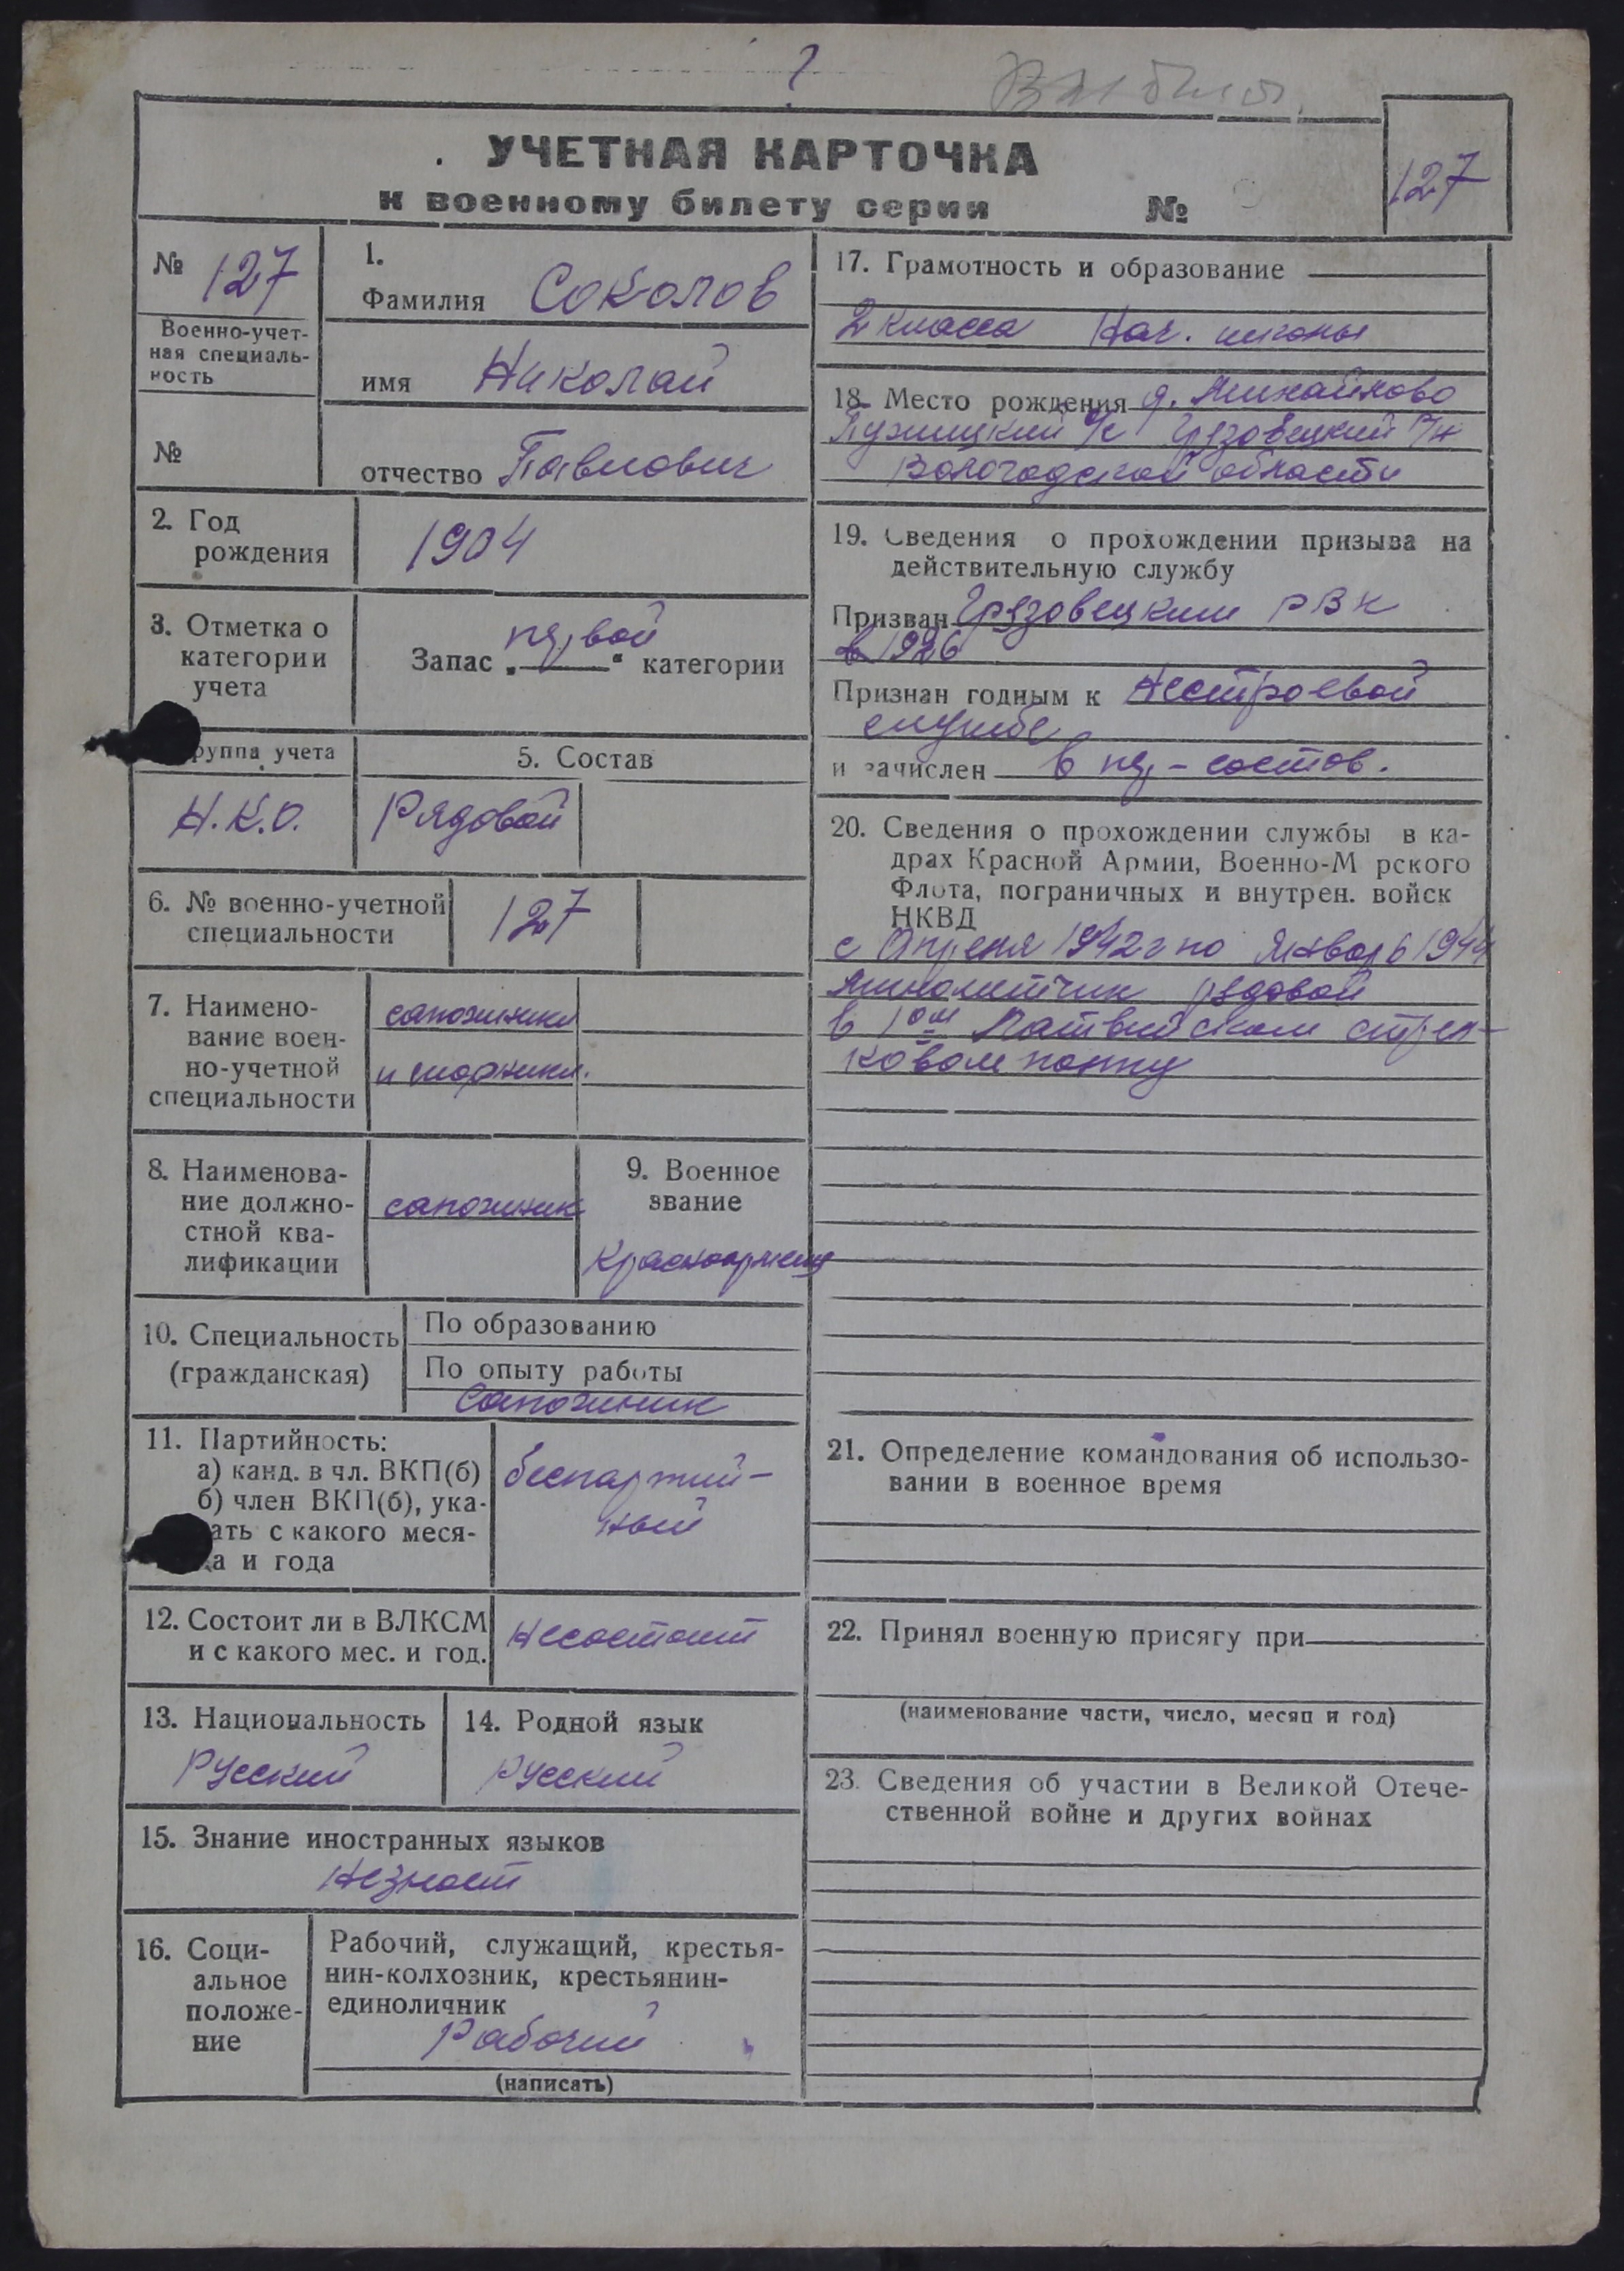 Выбыл
УЧЕТНАЯ КАРТОЧКА
к военному билету серии №
127
№ 127
Военно-учет-
ная специаль-
ность
№
1.
Фамилия Соколов
имя Николай
отчество Павлович
2. Год
рождения
1904
3. Отметка о
категории
учета
Запас „первой“ категории
руппа учета
Н.К.О.
5. Состав
Рядовой
6. № военно-учетной
специальности
127
7. Наимено-
вание воен-
но-учетной
специальности
сапожники
и шорники.
8. Наименова-
ние должно-
стной ква-
лификации
сапожник
9. Военное
звание
Красноармеец
10. Специальность
(гражданская)
По образованию
По опыту работы
Сапожник
11. Партийность:
а) канд. в чл. ВКП(б)
б) член ВКП(б), ука-
ать с какого меся-
ца и года
беспартий-
ный
12. Состоит ли в ВЛКСМ
и с какого мес. и год.
Несостоит
13. Национальность
Русский
14. Родной язык
Русский
15. Знание иностранных языков
Незнает
16. Соци-
альное
положе-
ние
Рабочий, служащий, крестья-
нин-колхозник, крестьянин-
единоличник
Рабочий
(написать)
17. Грамотность и образование
2 класса Нач. школы
18. Место рождения д. Михайлово
с/с Грязовецкий р/н
Вологодской области
19. Сведения о прохождении призыва на
действительную службу
Призван Грязовецким РВК
в 1926
Признан годным к Нестроевой
службе
и зачислен в пер-состав.
20. Сведения о прохождении службы в ка-
драх Красной Армии, Военно-М рского
Флота, пограничных и внутрен. войск
НКВД
с Апреля 1942г по Январь 1944
Минометчик рядовой
в 1ом Латвийском стрел-
ковом полку
21. Определение командования об использо-
вании в военное время
22. Принял военную присягу при
(наименование части, число, месяц и год)
23. Сведения об участии в Великой Отече-
ственной войне и других войнах